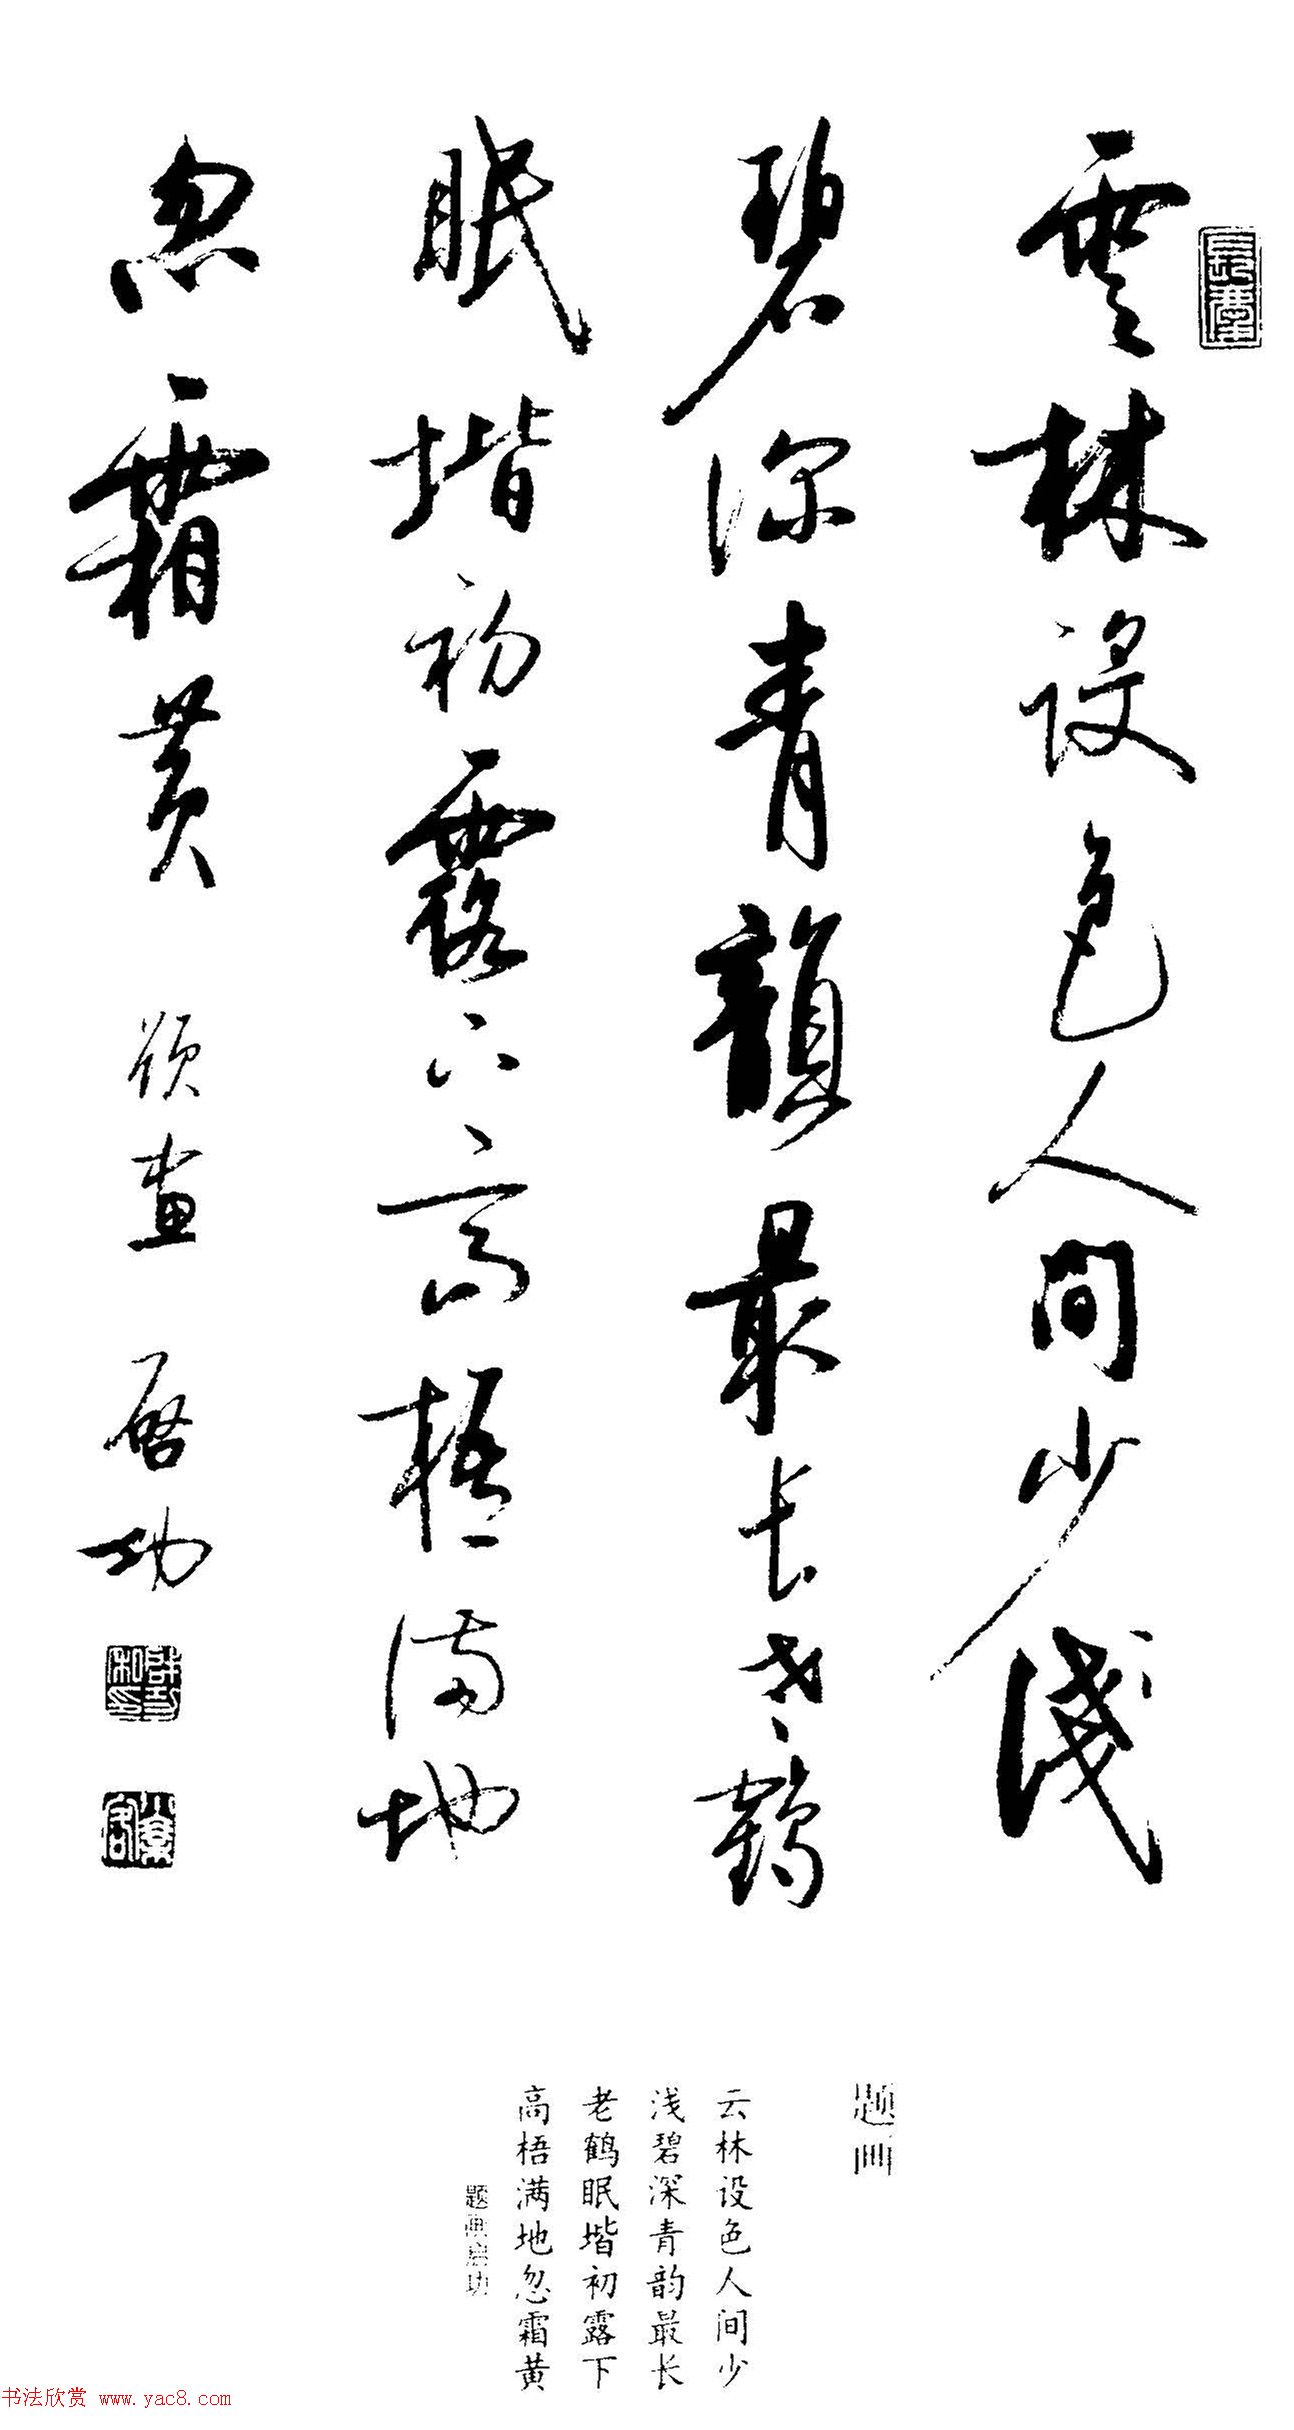 雲林设色人间少浅
碧深青韻最长老鹤
眠堦初露下高梧满地
忽霜黄 题画 启功
题画
云林设色人间少
浅碧深青韵最长
老鹤眠堦初露下
高梧满地忽霜黄
题画启功
书法欣赏 www.yac8.com